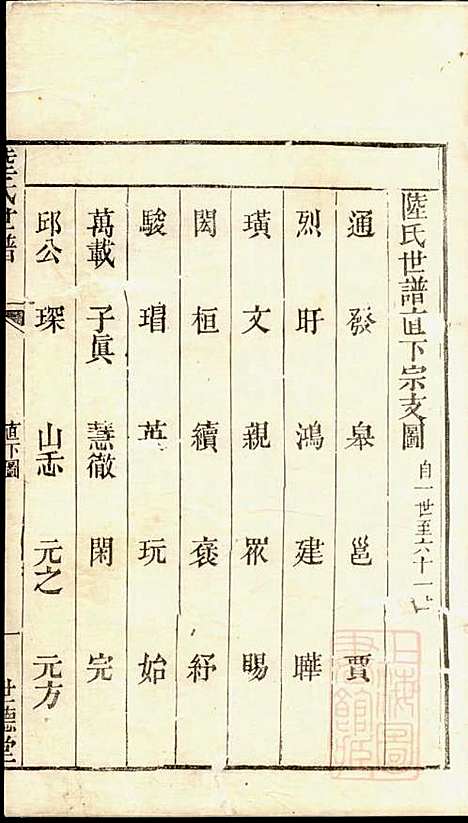 陸氏世譜直下宗支圖 自一世至六十一世
通 發 皋 邕 賈
烈 盱 鴻 建 曄
璜 文 親 眾 賜
閎 桓 續 褒 紓
駿 瑁 英 玩 始
萬載 子眞 慧徹 閑 完
邱公 琛 山丞 元之 元方
陸氏世譜 直下圖 一 世德堂
上海圖書館藏